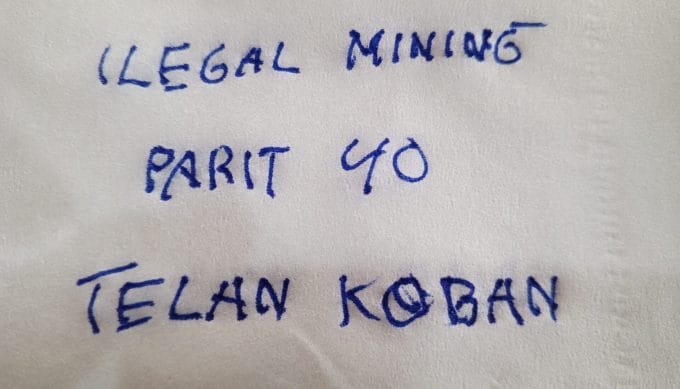 ILEGAL MINING
PARIT 40
TELAN KOBAN